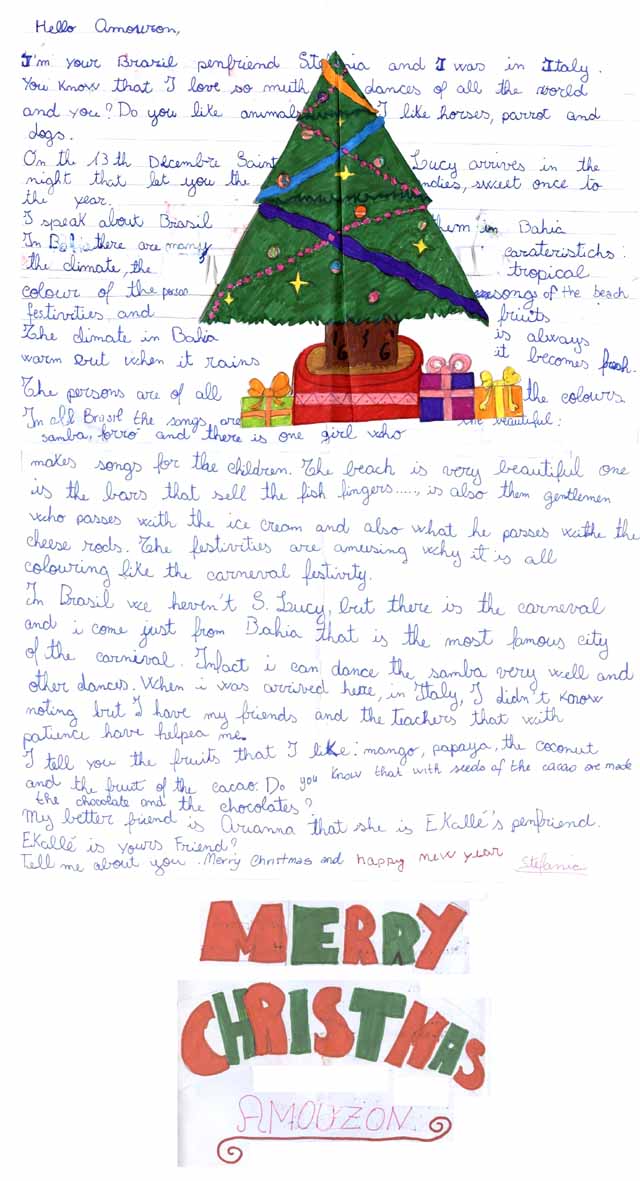 Hello Amouzon,
I'm your Brazil penfriend Stefania and I was in Italy.
You know that I love so muth dances of all the world
and you? Do you like animals I like horses, parrot and
dogs.
On the 13th Décembre Saint Lucy arrives in the
night that let you the ndies, sweet once to
the year.
I speak about Brasil them in Bahia
In Bahia there are many carateristichs:
the climate, the tropical
colour of the person song of the beach
festivities and fruits
The climate in Bahia is always
warm but when it rains it becomes fresh.
The persons are of all the colours
In all Brasil the songs are the beautiful:
samba, forró and there is one girl who
makes songs for the children. The beach is very beautiful one
is the bars that sell the fish fingers....., is also them gentlemen
who passes with the ice cream and also what he passes with the
cheese rods. The festivities are amusing why it is all
colouring like the carneval festivity.
In Brasil we heven't S. Lucy, but there is the carneval
and i come just from Bahia that is the most famous city
of the carnival. Infact i can dance the samba very well and
other dances. When i was arrived here, in Italy, I didn't know
noting but I have my friends and the teachers that with
patience have helped me.
I tell you the fruits that I like: mango, papaya, the coconut
and the fruit of the cacao. Do you know that with seeds of the cacao are made
the chocolate and the chocolates?
My better friend is Arianna that she is EKallé's penfriend.
EKallé is yours Friend?
Tell me about you. Merry Christmas and happy new year Stefania
MERRY
CHRISTMAS
AMOUZON